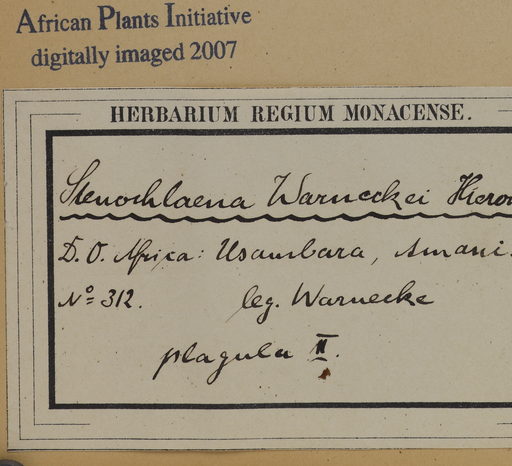 African Plants Initiative
digitally imaged 2007
HERBARIUM REGIUM MONACENSE.
Stenochlaena Warneckei Hieron
D. O. Africa: Usambara, Amani.
No 312. leg. Warnecke
plagula II.